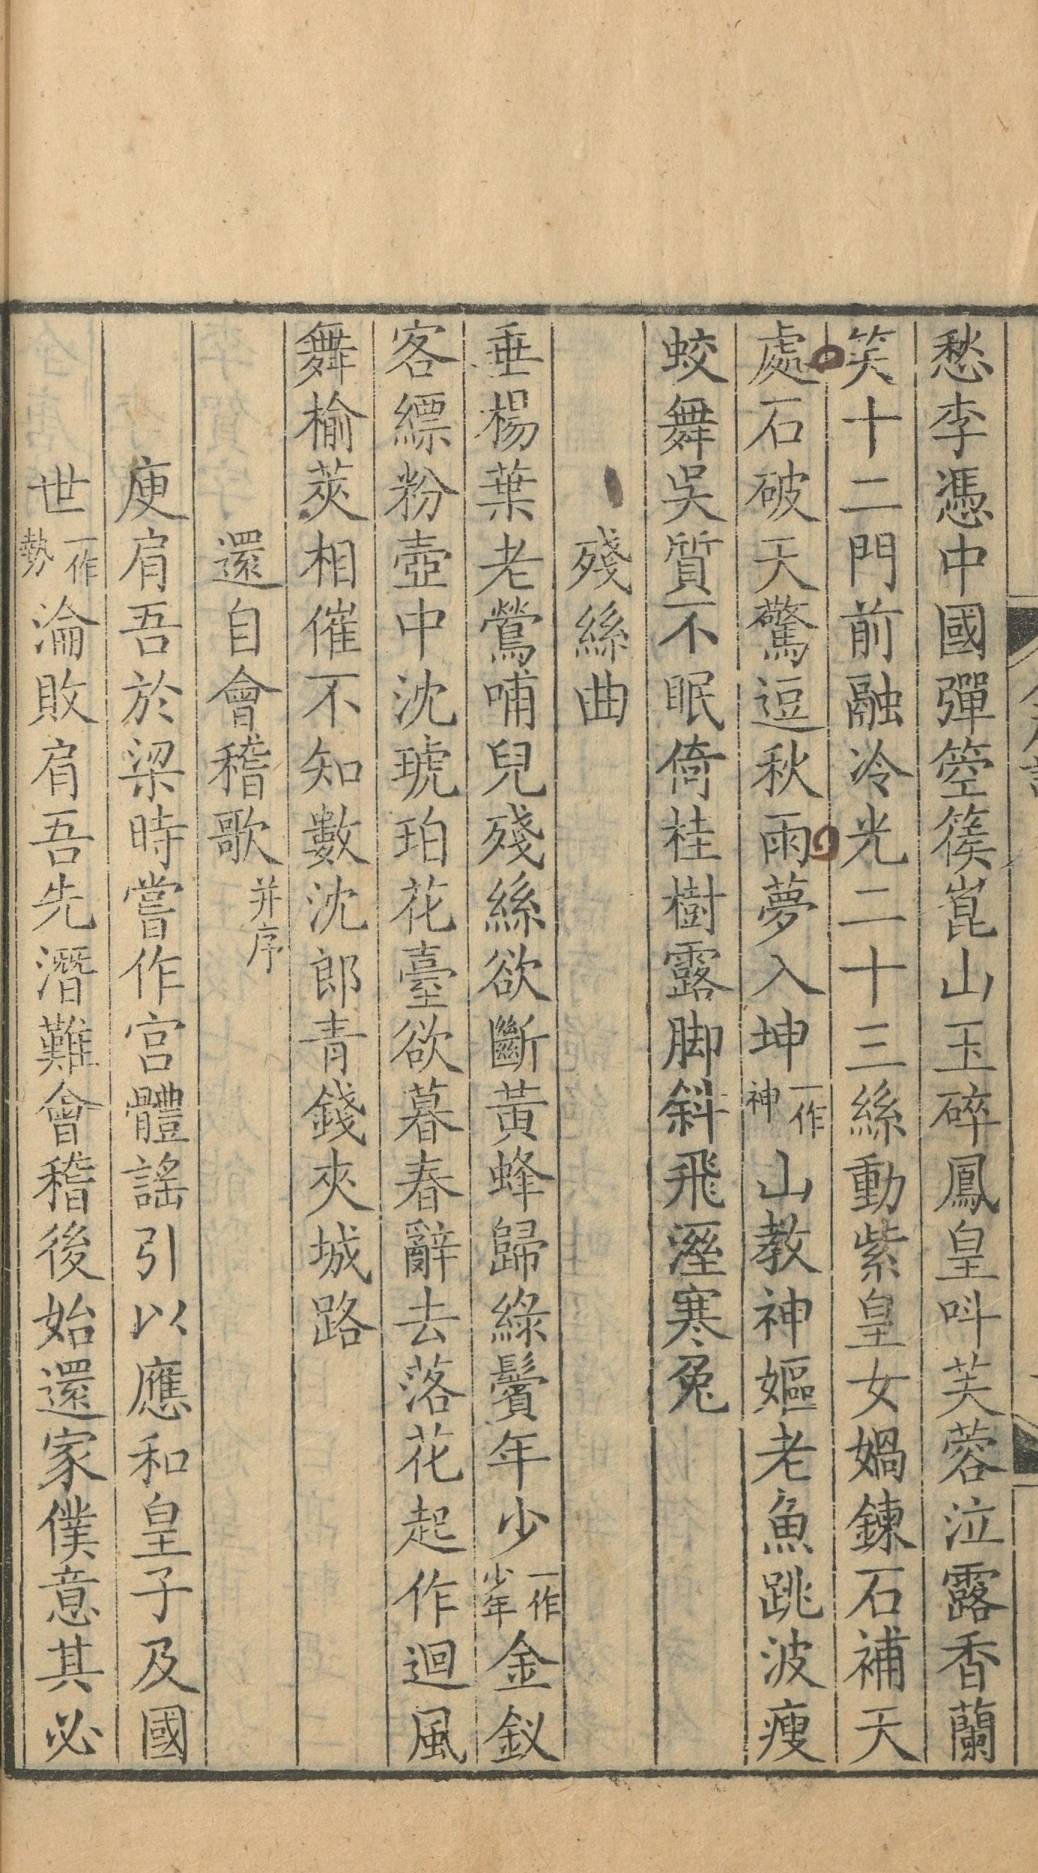 愁李憑中國彈箜篌崑山玉碎鳳皇叫芙蓉泣露香蘭
笑十二門前融冷光二十三絲動紫皇女媧鍊石補天
處石破天驚逗秋雨夢入坤一作神山教神嫗老魚跳波瘦
蛟舞吳質不眠倚桂樹露脚斜飛溼寒兔
殘絲曲
垂楊葉老鶯哺兒殘絲欲斷黃蜂歸綠鬢年少一作少年金釵
客縹粉壺中沈琥珀花臺欲暮春辭去落花起作迴風
舞榆莢相催不知數沈郎青錢夾城路
還自會稽歌并序
庾肩吾於梁時嘗作宮體謠引以應和皇子及國
世一作勢淪敗肩吾先潛難會稽後始還家僕意其必